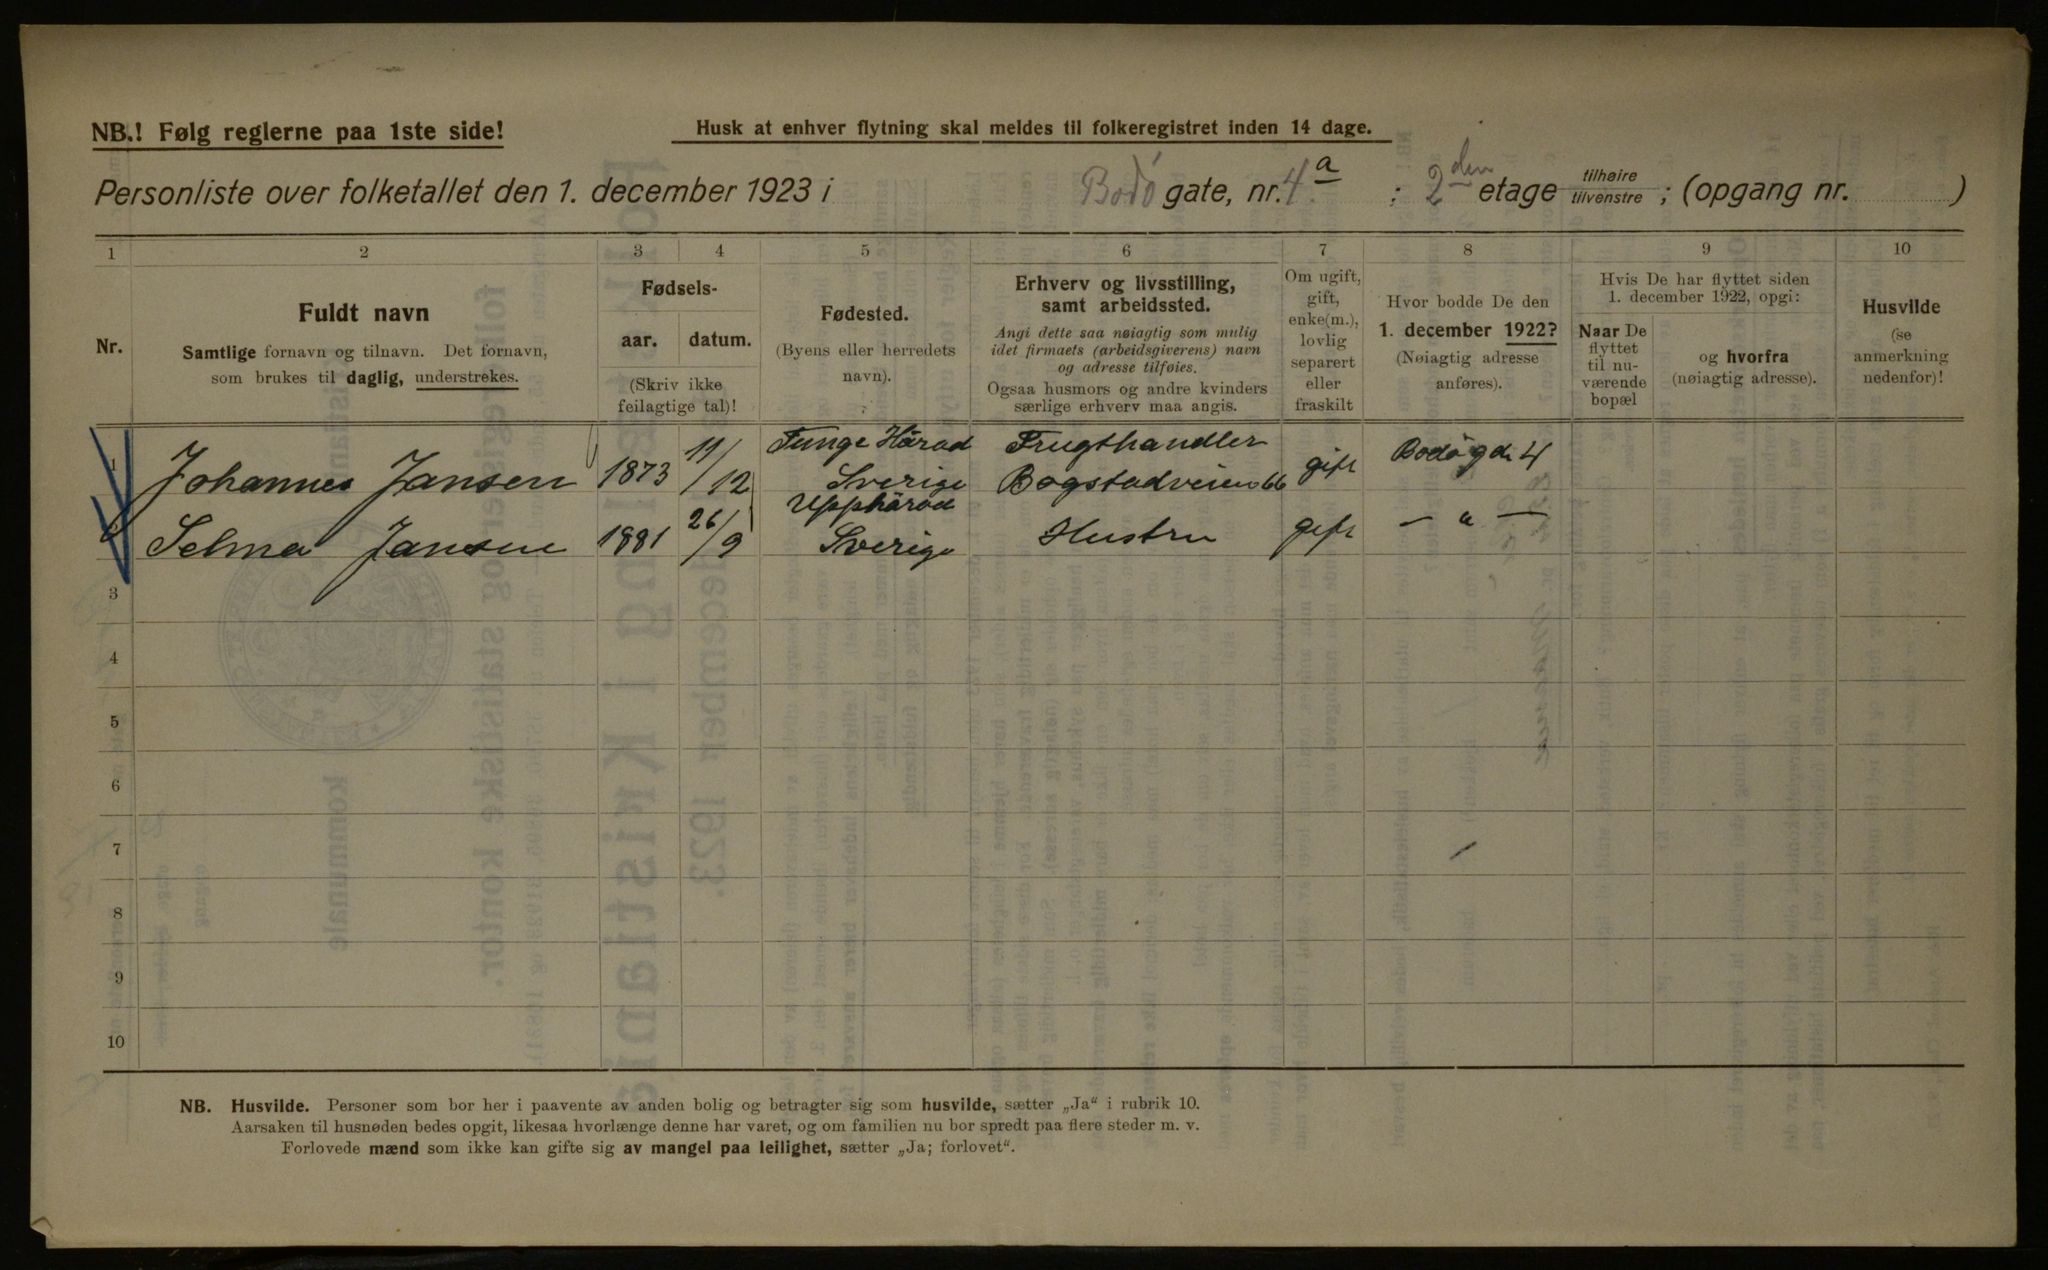 NB.! Følg reglerne paa 1ste side!
Husk at enhver flytning skal meldes til folkeregistret inden 14 dage.
Personliste over folketallet den 1. december 1923 i Bodö gate, nr. 4 a : 2 den etage tilhøire tilvenstre ; (opgang nr. )
1 2 3 4 5 6 7 8 9 10
Nr.
Fuldt navn
Samtlige fornavn og tilnavn. Det fornavn,
som brukes til daglig, understrekes.
Fødsels-
aar. datum.
(Skriv ikke
feilagtige tal)!
Fødested.
(Byens eller herredets
navn).
Erhverv og livsstilling,
samt arbeidssted.
Angi dette saa nøiagtig som mulig
idet firmaets (arbeidsgiverens) navn
og adresse tilføies.
Ogsaa husmors og andre kvinders
særlige erhverv maa angis.
Om ugift,
gift,
enke(m.),
lovlig
separert
eller
fraskilt
Hvor bodde De den
1. december 1922?
(Nøiagtig adresse
anføres).
Hvis De har flyttet siden
1. december 1922, opgi:
Naar De
flyttet
til nu-
værende
bopæl
og hvorfra
(nøiagtig adresse).
Husvilde
(se
anmerkning
nedenfor)!
1 Johannes Jansen 1873 11/12 Tunge Härad Sverige Frugthandler Bogstadveien 66 gift Bodögd. 4
2 Selma Jansen 1881 26/9 Upphärad Sverige Hustru gift — " —
3
4
5
6
7
8
9
10
NB. Husvilde. Personer som bor her i paavente av anden bolig og betragter sig som husvilde, sætter „Ja“ i rubrik 10.
Aarsaken til husnøden bedes opgit, likesaa hvorlænge denne har varet, og om familien nu bor spredt paa flere steder m. v.
Forlovede mænd som ikke kan gifte sig av mangel paa leilighet, sætter „Ja; forlovet“.